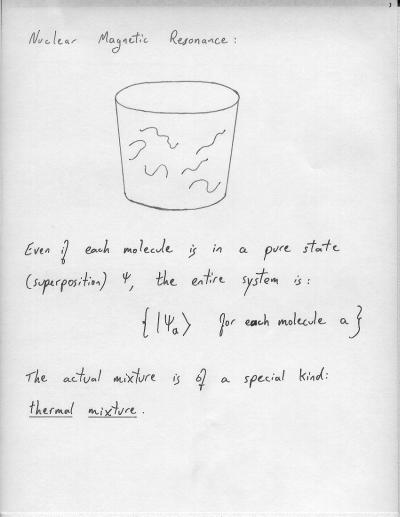 Nuclear Magnetic Resonance:
Even if each molecule is in a pure state
(superposition) Ψ, the entire system is:
{|Ψₐ⟩ for each molecule a}
The actual mixture is of a special kind:
thermal mixture.